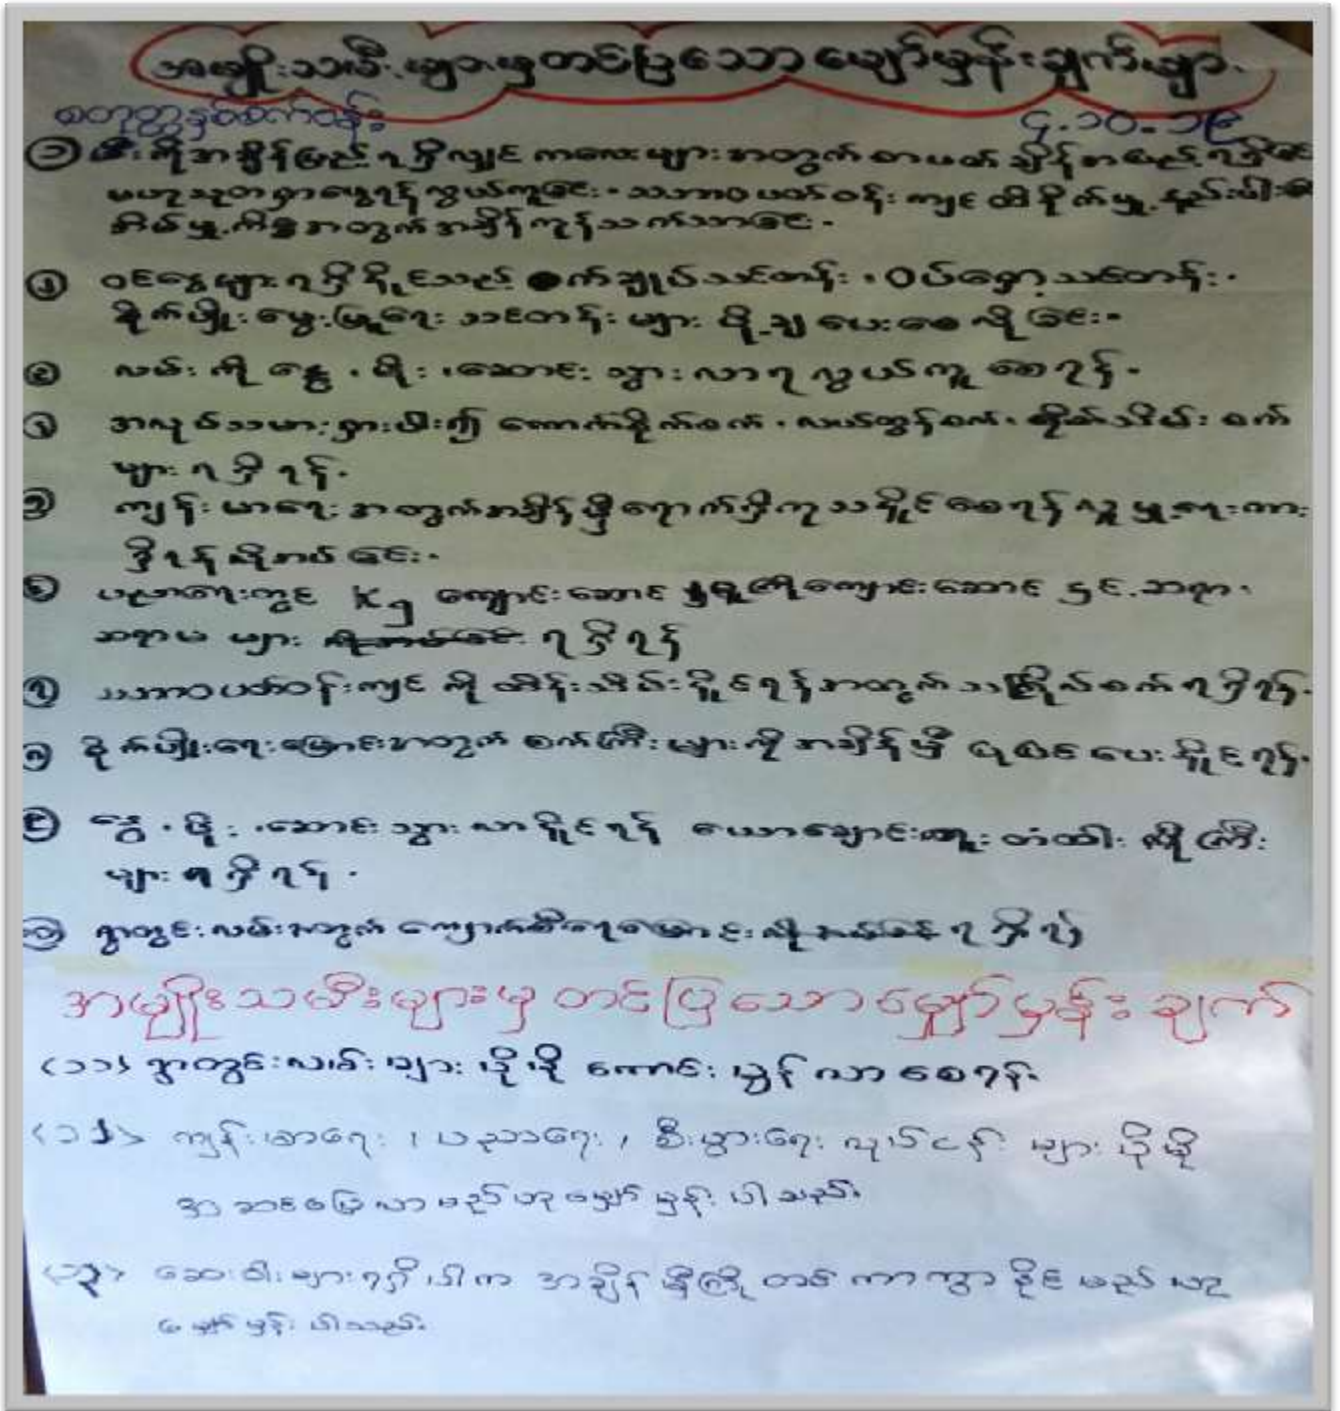 အမျိုးသမီးများမှတင်ပြသောမျှော်မှန်းချက်များ
စတုတ္ထနှစ်စက်ဝန်း
၄.၁၀.၁၉
① မီးကိုအချိန်ပြည့်ရရှိလျှင် ကလေးများအတွက်စာဖတ်ချိန်စာမည့်ရရှိခြင်း
ဗဟုသုတရှာဖွေရန်လွယ်ကူခြင်း ၊ သဘာဝပတ်ဝန်းကျင်ထိခိုက်မှု့နည်းပါး
အိမ်မှု့ကိစ္စအတွက်အချိန်ကုန်သက်သာခြင်း ၊
② ဝင်ငွေများရရှိနိုင်သည့် စက်ချုပ်သင်တန်း ၊ ဝပ်ရှော့သင်တန်း ၊
စိုက်ပျိုးမွေးမြူရေးသင်တန်းများ ပို့ချပေးစေလိုခြင်း ၊
③ လမ်းကို နွေ ၊ မိုး ၊ ဆောင်း သွားလာရလွယ်ကူစေရန် ၊
④ အလုပ်သမားရှားပါး၍ ကောက်စိုက်စက် ၊ လယ်ထွန်စက် ၊ ရိတ်သိမ်းစက်
များရရှိရန် ၊
⑤ ကျန်းမာရေးအတွက်အချိန်မှီရောက်ရှိကုသနိုင်စေရန်လူမှု့ရေးကား
ရှိရန်လိုအပ်ခြင်း ၊
⑥ ပညာရေးတွင် Kg ကျောင်းဆောင် မူကြိုကျောင်းဆောင် နှင့် ဆရာ ၊
ဆရာမ များ ရရှိရန်
⑦ သဘာဝပတ်ဝန်းကျင် ကို ထိန်းသိမ်းနိုင်ရန်အတွက် ရရှိရန် ၊
⑧ စိုက်ပျိုးရေးမြောင်းအတွက် စက်ကြီးများကို အချိန်မှီ ပြုပြင်ပေးနိုင်ရန် ၊
⑨ နွေ ၊ မိုး ၊ ဆောင်းသွားလာနိုင်ရန် ယောချောင်းကူးတံထါးကြီး
များရရှိရန် ၊
⑩ ရွာတွင်းလမ်းအတွက် ကျောက်စီရေမြောင်း ရရှိရန်
အမျိုးသမီးများမှ တင်ပြသောမျှော်မှန်းချက်
(၁၁) ရွာတွင်းလမ်းများ ပိုမို ကောင်းမွန်လာစေရန်
(၁၂) ကျန်းမာရေး ၊ ပညာရေး ၊ စီးပွားရေး လုပ်ငန်းများ ပိုမို
အဆင်ပြေလာမည်ဟုမျှော်မှန်းပါသည်။
(၁၃) ဆေးဝါးများရရှိပါက အချိန်မှီကြိုတင်ကာကွယ်နိုင်မည်ဟု
မျှော်မှန်းပါသည်။